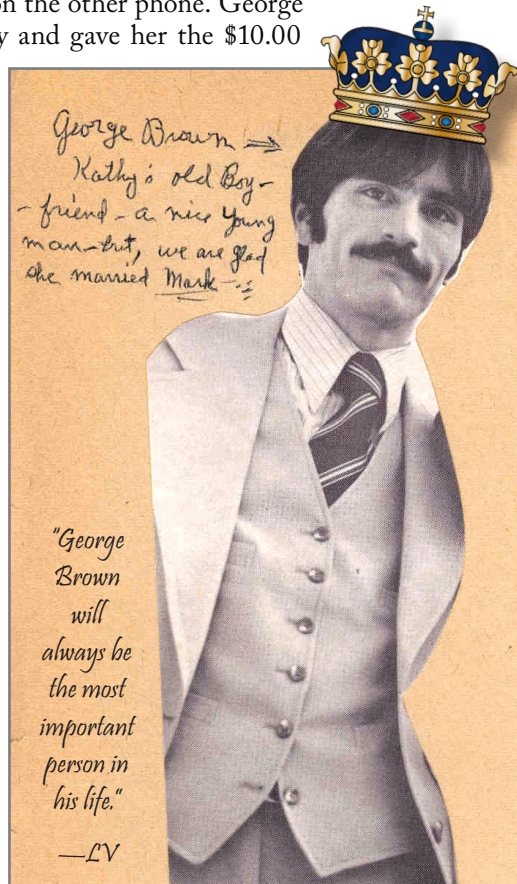 on the other phone. George
y and gave her the $10.00
George Brown ⇒
Kathy's old Boy-
- friend - a nice young
man - but, we are glad
she married Mark -
"George
Brown
will
always be
the most
important
person in
his life."
—LV